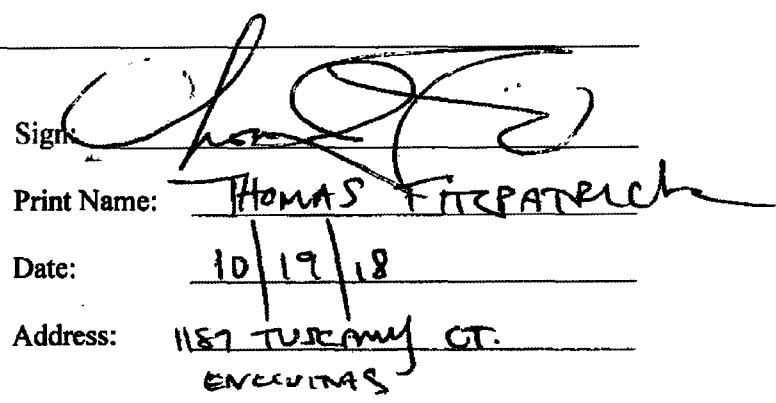 Sign:
Print Name: THOMAS FITZPATRICK
Date: 10/19/18
Address: 1187 TUSCANY CT.
ENCINITAS